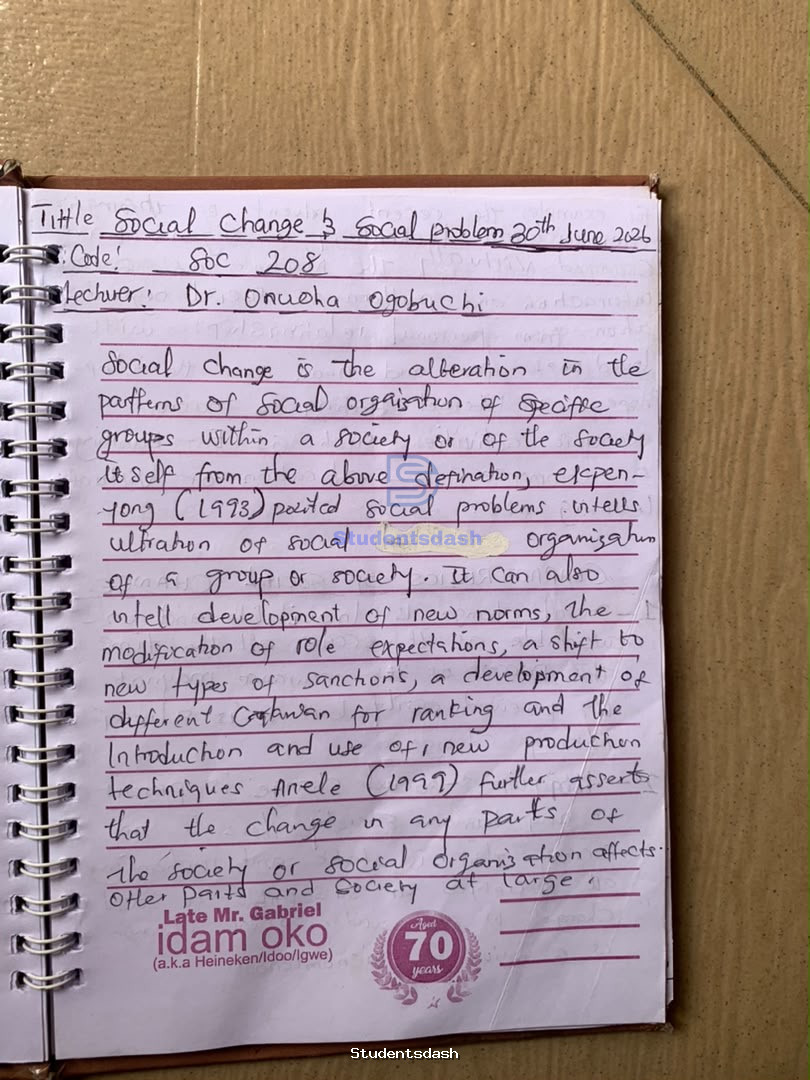 Tittle Social Change & Social problem 30th June 2026
Code: SOC 208
Lecturer: Dr. Onuoha Ogobuchi
Social change is the alteration in the
patterns of social organisation of specific
groups within a society or of the society
itself from the above defination, ekpen-
yong (1993) posited social problems intells
ultration of social organisation
of a group or society. It can also
intell development of new norms, the
modification of role expectations, a shift to
new types of sanctions, a development of
different for ranking and the
Introduction and use of, new production
techniques Anele (1999) further asserts
that the change in any parts of
the society or social organisation affects.
other parts and society at large.
Late Mr. Gabriel
idam oko
(a.k.a Heineken/Idoo/Igwe)
Aged
70
years
Studentsdash
Studentsdash